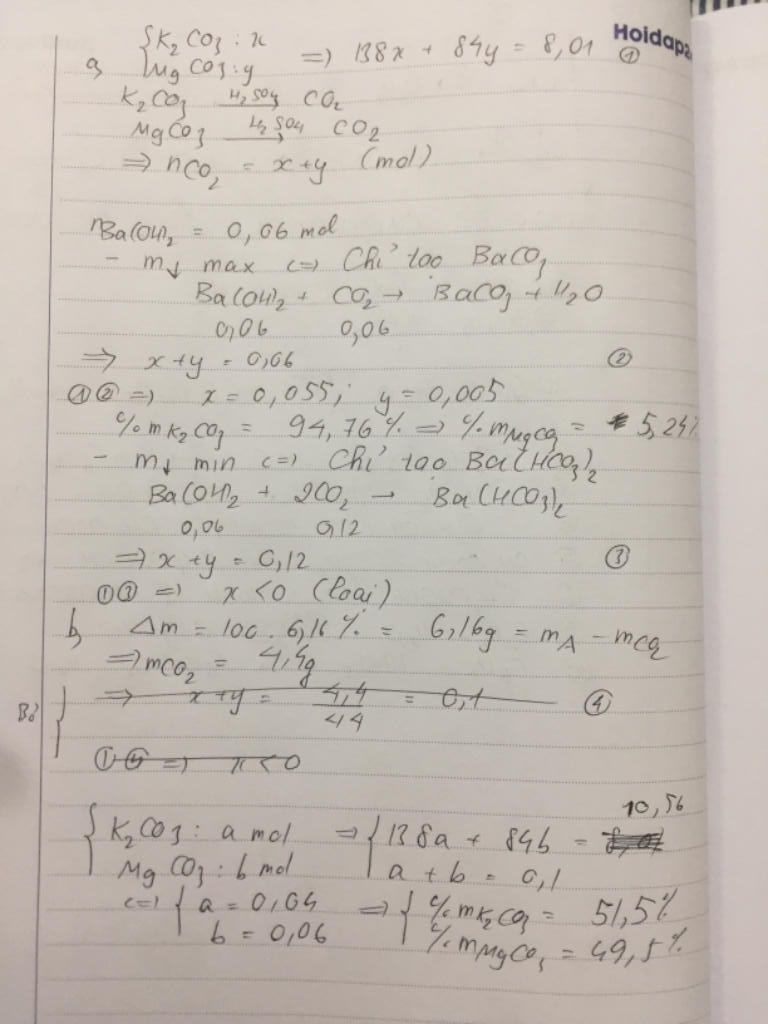 Hoidap
a, {K2CO3 : x
{MgCO3 : y => 138x + 84y = 8,01 ①
K2CO3 —H2SO4→ CO2
MgCO3 —H2SO4→ CO2
=> nCO2 = x+y (mol)
nBa(OH)2 = 0,06 mol
- m↓ max <=> Chỉ tạo BaCO3
Ba(OH)2 + CO2 → BaCO3 + H2O
0,06 0,06
=> x+y = 0,06 ②
①② => x = 0,055; y = 0,005
%mK2CO3 = 94,76% => %mMgCO3 = 5,24%
- m↓ min <=> Chỉ tạo Ba(HCO3)2
Ba(OH)2 + 2CO2 → Ba(HCO3)2
0,06 0,12
=> x+y = 0,12 ③
①③ => x <0 (loại)
b, Δm = 100 . 6,16% = 6,16g = mA - mCO2
=> mCO2 = 4,4g
=> x+y = 4,4/44 = 0,1 ④
Bỏ
①④ => x <0
{K2CO3 : a mol => {138a + 84b = 10,56
{MgCO3 : b mol {a + b = 0,1
<=> {a = 0,04 => {%mK2CO3 = 51,5%
{b = 0,06 {%mMgCO3 = 49,5%